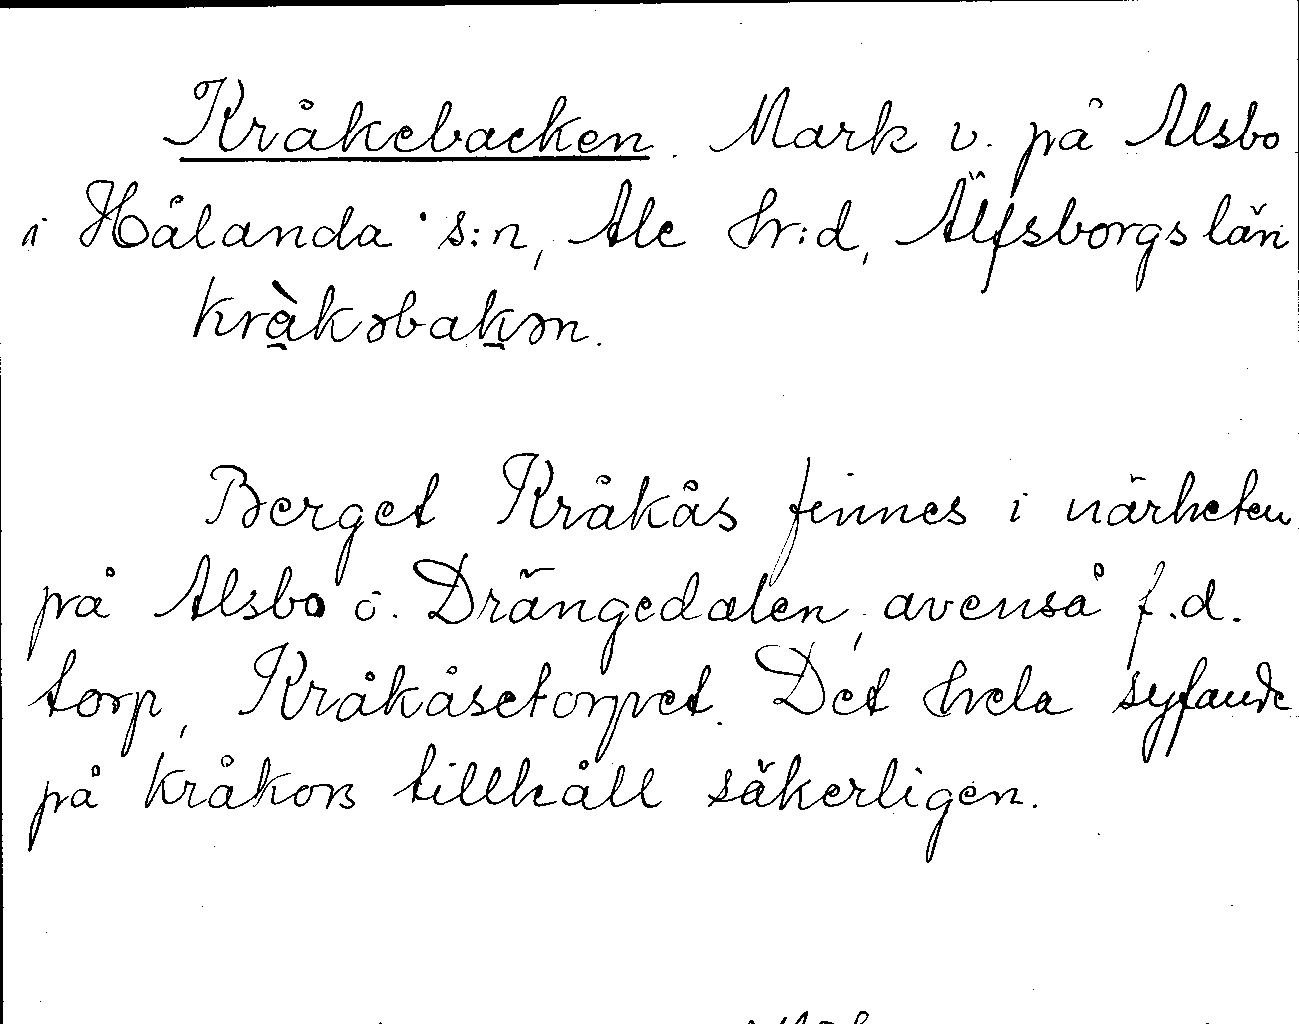 Kråkebacken. Mark v. på Alsbo
i Hålanda s:n, Ale hr:d, Älfsborgs län
krà̲kəbak̲ən.
Berget Kråkås finnes i närheten
på Alsbo o. Drängedalen, avenså f.d.
torp, Kråkåsetorpet. Det hela syftande
på kråkors tillhåll säkerligen.